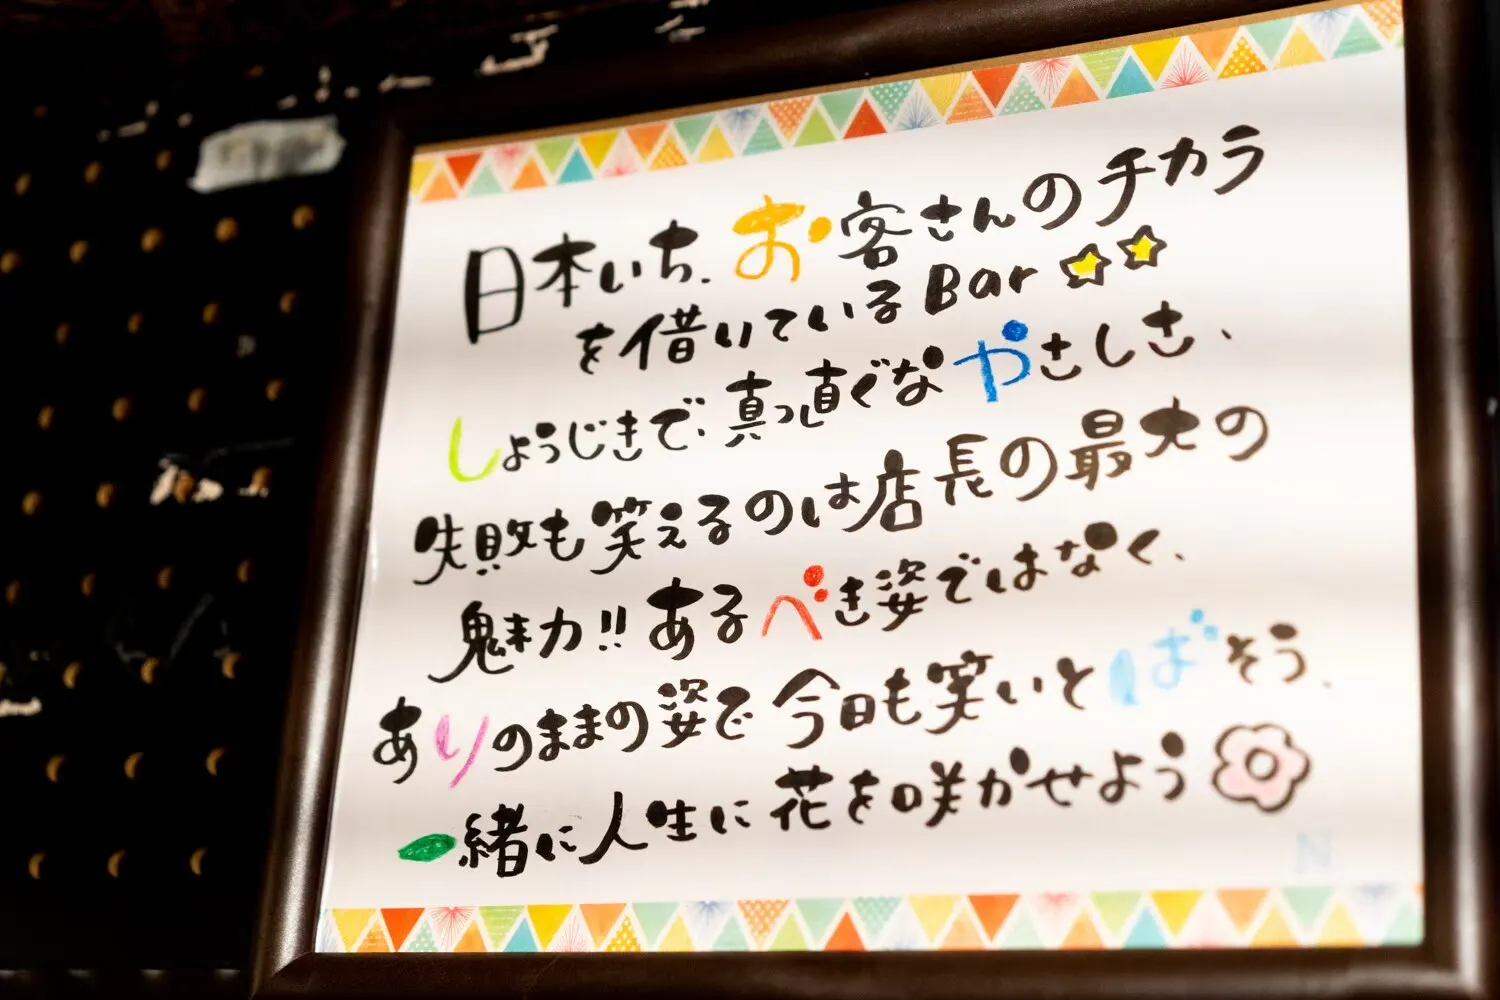 日本いち、お客さんのチカラ
を借いているBar
しょうじきで、真っ直ぐなやさしさ、
失敗も笑えるのは店長の最大の
魅力!!あるべき姿ではなく、
ありのままの姿で今日も笑いとばそう、
一緒に人生に花を咲かせよう
N